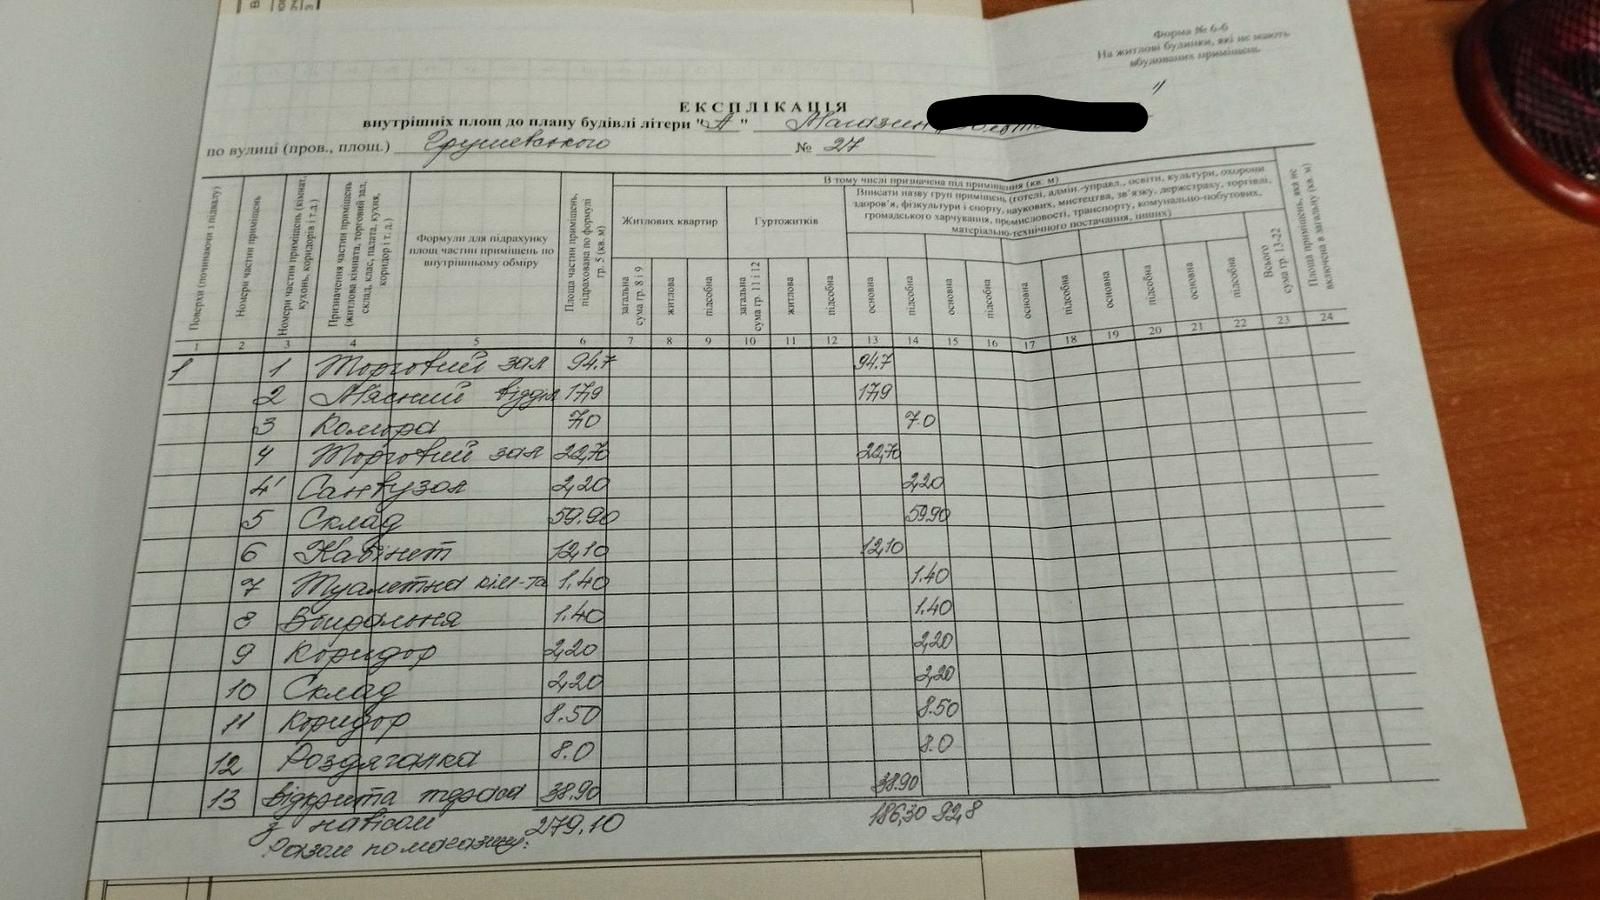 Форма № 6-б
На житлові будинки, які не мають
вбудованих приміщень
ЕКСПЛІКАЦІЯ
внутрішніх площ до плану будівлі літери "А" Магазин
по вулиці (пров., площ.) Грушевського № 27
Поверхи (починаючи з підвалу)
Номери частин приміщень
Номери частин приміщень (кімнат, кухонь, коридорів і т.д.)
Призначення частин приміщень (житлова кімната, торговий зал, склад, клас, палата, кухня, коридор і т.д.)
Формули для підрахунку площ частин приміщень по внутрішньому обміру
Площа частин приміщень, підрахована по формулі гр. 5 (кв. м)
В тому числі призначена під приміщення (кв. м)
Житлових квартир
Гуртожитків
Вписати назву груп приміщень (готелі, адмін.-управл., освіти, культури, охорони
здоров'я, фізкультури і спорту, наукових, мистецтва, зв'язку, держстраху, торгівлі,
громадського харчування, промисловості, транспорту, комунально-побутових,
матеріально-технічного постачання, інших)
загальна сума гр. 8 і 9
житлова
підсобна
загальна сума гр. 11 і 12
житлова
підсобна
основна
підсобна
основна
підсобна
основна
підсобна
основна
підсобна
основна
підсобна
Всього сума гр. 13-22
Площа приміщень, яка не включена в загальну (кв. м)
1 2 3 4 5 6 7 8 9 10 11 12 13 14 15 16 17 18 19 20 21 22 23 24
1 1 Торговий зал 94.7 94.7
2 М'ясний відділ 17,9 17,9
3 Комора 7.0 7.0
4 Торговий зал 22,70 22,70
4' Санвузол 2,20 2,20
5 Склад 59.90 59.90
6 Кабінет 12,10 12,10
7 Туалетна кім-та 1.40 1.40
8 Вбиральня 1.40 1.40
9 Коридор 2,20 2,20
10 Склад 2,20 2,20
11 Коридор 8.50 8.50
12 Роздягалка 8.0 8.0
13 відкрита тераса 38.90 38.90
з навісом 279.10 186,30 92,8
Разом по магазину: